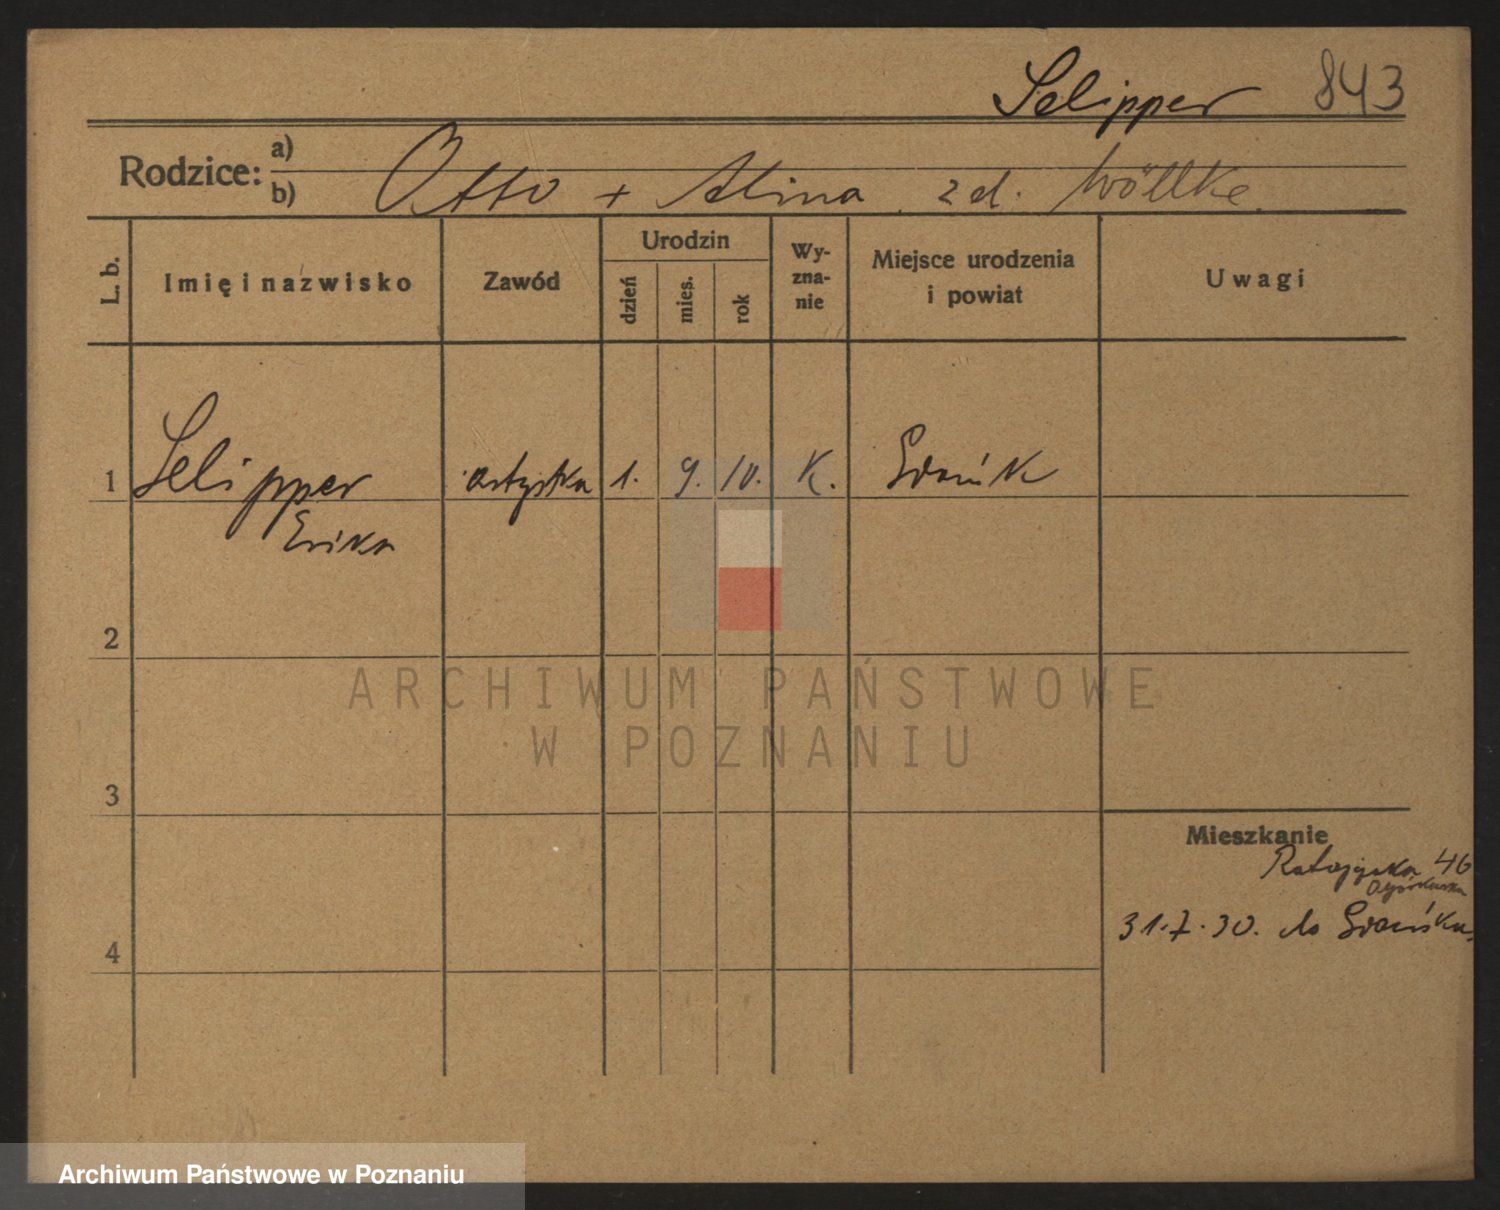 Selipper 843
Rodzice: a)
b) Otto + Alina zd. Wöllke
L. b. Imię i nazwisko Zawód Urodzin dzień mies. rok Wy-zna-nie Miejsce urodzenia i powiat Uwagi
1 Selipper artystka 1. 9. 10. K. Gdańsk
Erika
2
ARCHIWUM PAŃSTWOWE
W POZNANIU
3
Mieszkanie
46
31.7.30. do Gdańska
4
Archiwum Państwowe w Poznaniu